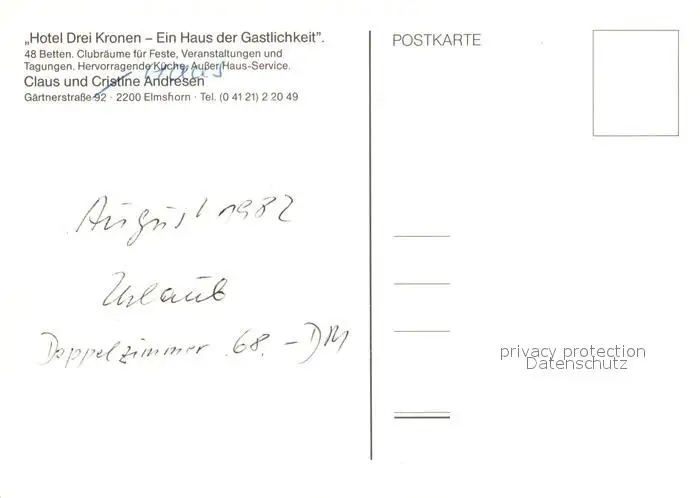 „Hotel Drei Kronen – Ein Haus der Gastlichkeit”.
48 Betten. Clubräume für Feste, Veranstaltungen und
Tagungen. Hervorragende Küche, Außer Haus-Service.
Claus und Cristine Andresen
Gärtnerstraße 92 · 2200 Elmshorn · Tel. (0 41 21) 2 20 49
POSTKARTE
August 1982
Urlaub
Doppelzimmer 68.–DM
privacy protection
Datenschutz